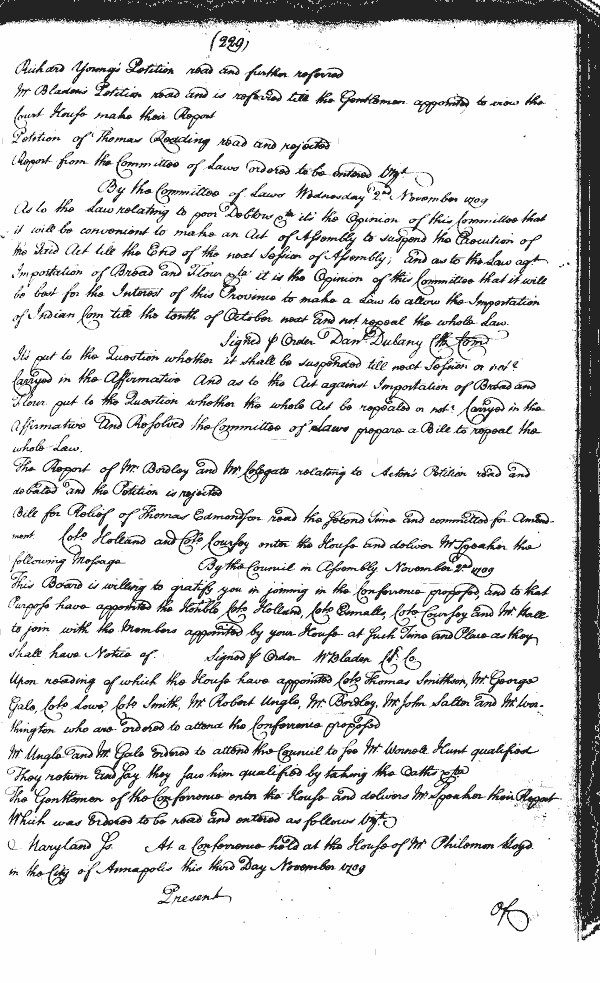 (229)
Richard Young's Petition read and further referred
Mr Bladen's Petition read and is referred till the Gentlemen appointed to view the
Court House make their Report
Petition of Thomas Reading read and rejected
Report from the Committee of Laws ordered to be entered Vizt
By the Committee of Laws Wednesday 2d November 1709
As to the Law relating to poor Debtors &ca its the Opinion of this Committee that
it will be convenient to make an Act of Assembly to suspend the Execution of
the said Act till the End of the next Session of Assembly; and as to the Law agt
Importation of Bread and Flour &ca it is the Opinion of this Committee that it will
be best for the Interest of this Province to make a Law to allow the Importation
of Indian Corn till the tenth of October next and not repeal the whole Law.
Signed p Order Danl Dulany Clk Com
Its put to the Question whether it shall be suspended till next Session or not?
Carryed in the Affirmative And as to the Act against Importation of Bread and
Flour put to the Question whether the whole Act be repealed or not? Carryed in the
Affirmative And Resolved the Committee of Laws prepare a Bill to repeal the
whole Law.
The Report of Mr Bordley and Mr Colegate relating to Acton's Petition read and
debated and the Petition is rejected
Bill for Relief of Thomas Edmondson read the second Time and committed for Amend-
ment Colo Holland and Colo Coursey enter the House and deliver Mr Speaker the
following Message By the Council in Assembly November 2d 1709
This Board is willing to gratify you in joining in the Conference proposed and to that
Purpose have appointed the Honble Colo Holland, Colo Ennalls, Colo Coursey and Mr Hall
to join with the Members appointed by your House at such Time and Place as they
shall have Notice of. Signed p Order W Bladen Cl. Co
Upon reading of which the House have appointed Colo Thomas Smithson, Mr George
Gale, Colo Lowe, Colo Smith, Mr Robert Ungle, Mr Bordley, Mr John Salter and Mr Wor-
thington who are ordered to attend the Conference proposed
Mr Ungle and Mr Gale ordered to attend the Council to see Mr Wornele Hunt qualified
They return and say they saw him qualified by taking the Oaths &ca
The Gentlemen of the Conference enter the House and delivers Mr Speaker their Report
Which was ordered to be read and entered as follows Vizt
Maryland Ss. At a Conference held at the House of Mr Philemon Lloyd
in the City of Annapolis this third Day November 1709
Present
Of